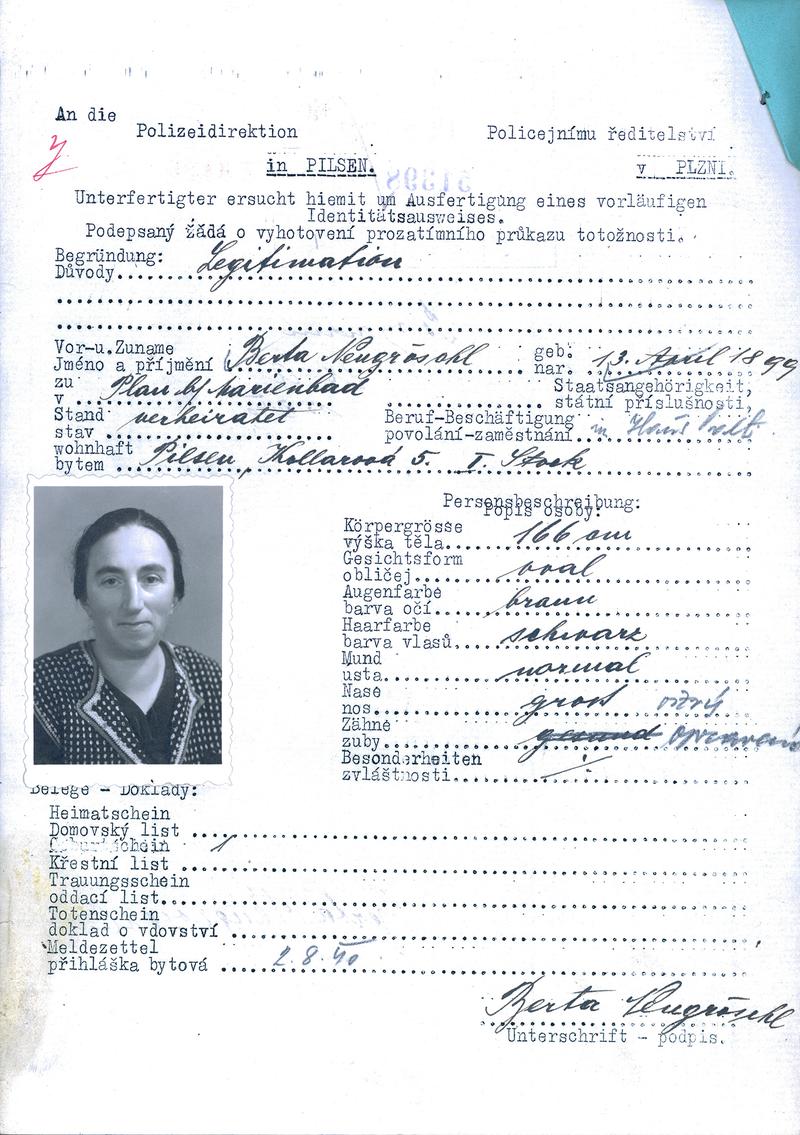 An die
Polizeidirektion Policejnímu ředitelství
in PILSEN. v PLZNI.
Unterfertigter ersucht hiemit um Ausfertigung eines vorläufigen
Identitätsausweises.
Podepsaný žádá o vyhotovení prozatímního průkazu totožnosti.
Begründung: Legitimation
Důvody
Vor-u.Zuname Berta Neugröschl geb. 13. April 1899
Jméno a příjmění nar.
zu Plan b/Marienbad Staatsangehörigkeit,
v státní příslušnosti,
Stand verheiratet Beruf-Beschäftigung in Haus
stav povolání-zaměstnání
wohnhaft Pilsen, Kollarová 5. I. Stock
bytem
Personsbeschreibung:
Popis osoby:
Körpergrösse 166 cm
výška těla
Gesichtsform oval
obličej
Augenfarbe braun
barva očí
Haarfarbe schwarz
barva vlasů
Mund normal
usta
Nase gross
nos
Zähne gesund
zuby
Besonderheiten
zvláštnosti
Belege - Doklady:
Heimatschein
Domovský list
Geburtschein 1
Křestní list
Trauungsschein
oddací list
Totenschein
doklad o vdovství
Meldezettel 2.8.40
přihláška bytová
Berta Neugröschl
Unterschrift - podpis.